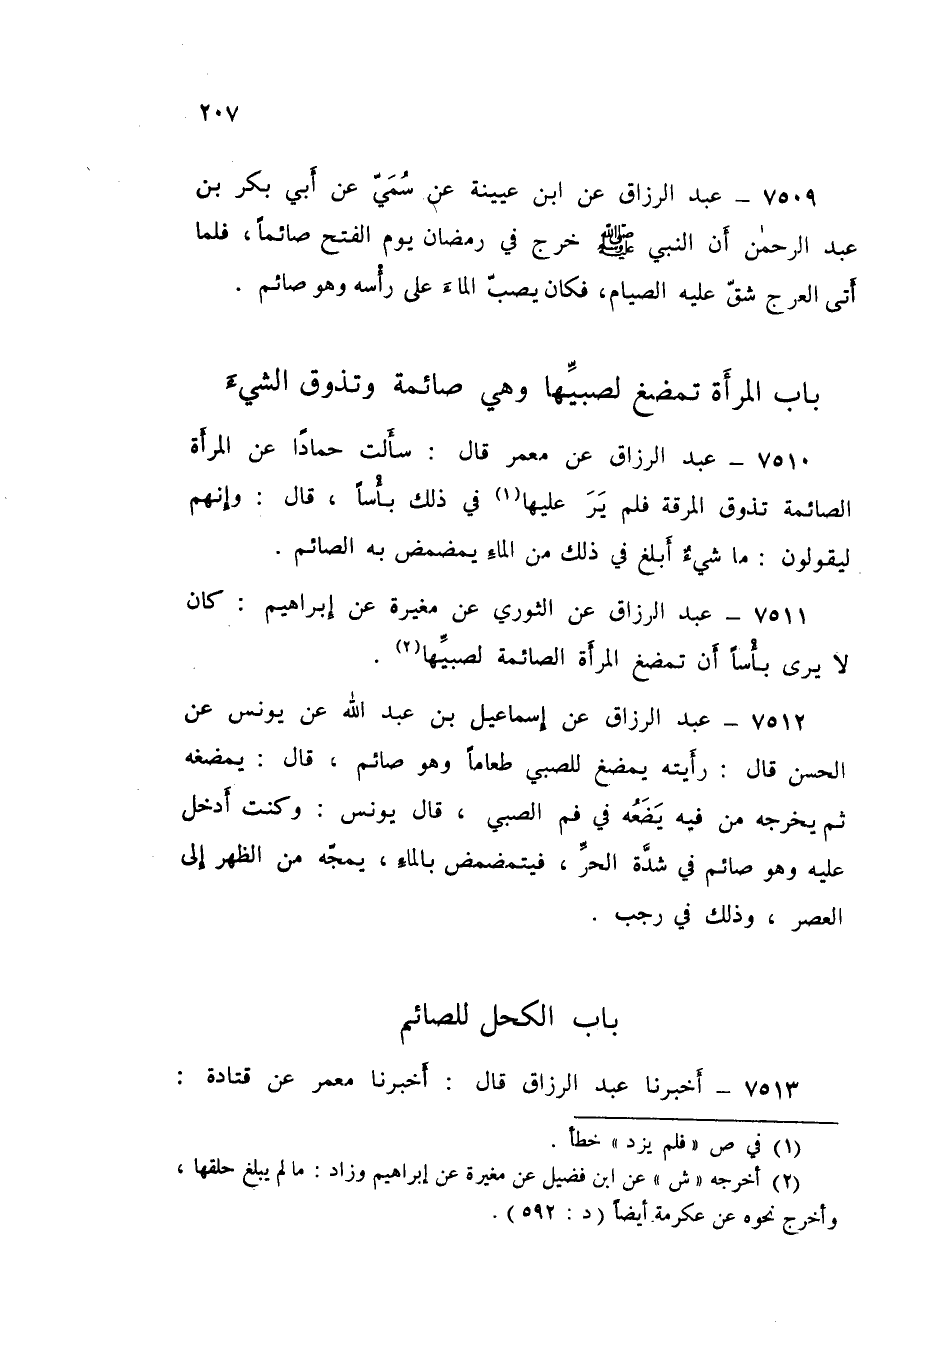 ٢٠٧
٧٥٠٩ – عبد الرزاق عن ابن عيينة عن سُمَيّ عن أَبي بكر بن
عبد الرحمٰن أَن النبي ﷺ خرج في رمضان يوم الفتح صائماً، فلما
أَتى العرج شقّ عليه الصيام، فكان يصبّ الماءَ على رأْسه وهو صائم .
باب المرأَة تمضغ لصبيِّها وهي صائمة وتذوق الشيءَ
٧٥١٠ – عبد الرزاق عن معمر قال : سأَلت حمادًا عن المرأَة
الصائمة تذوق المرقة فلم يَرَ عليها(١) في ذلك بأْساً ، قال : وإنهم
ليقولون : ما شيءٌ أَبلغ في ذلك من الماءِ يمضمض به الصائم .
٧٥١١ – عبد الرزاق عن الثوري عن مغيرة عن إبراهيم : كان
لا يرى بأْساً أَن تمضغ المرأَة الصائمة لصبيِّها(٢) .
٧٥١٢ – عبد الرزاق عن إسماعيل بن عبد الله عن يونس عن
الحسن قال : رأَيته يمضغ للصبي طعاماً وهو صائم ، قال : يمضغه
ثم يخرجه من فيه يَضَعُه في فم الصبي ، قال يونس : وكنت أَدخل
عليه وهو صائم في شدَّة الحرِّ ، فيتمضمض بالماءِ ، يمجّه من الظهر إلى
العصر ، وذلك في رجب .
باب الكحل للصائم
٧٥١٣ – أَخبرنا عبد الرزاق قال : أَخبرنا معمر عن قتادة :
(١) في ص « فلم يزد » خطأ .
(٢) أخرجه « ش » عن ابن فضيل عن مغيرة عن إبراهيم وزاد : ما لم يبلغ حلقها ،
وأخرج نحوه عن عكرمة أيضاً ( د : ٥٩٢ ) .